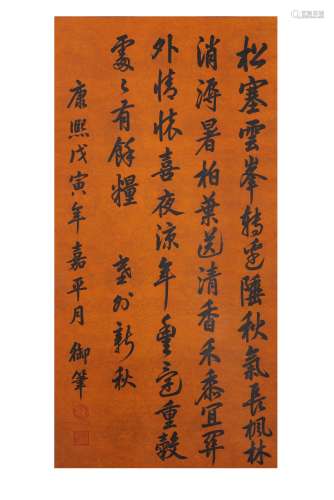 松塞雲峯轉邊陲秋氣長楓林
消溽暑柏葉送清香禾黍宜關
外情懷喜夜涼年豐寔重穀
處〻有餘糧 塞外新秋
康熙戊寅年嘉平月 御筆